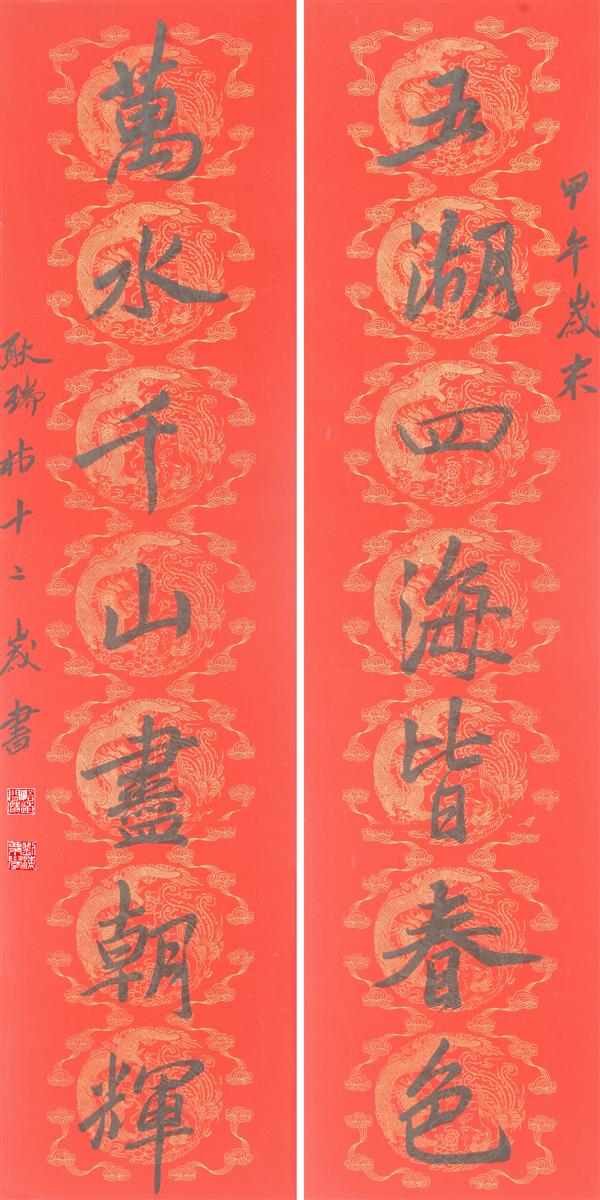 甲午歲末
五湖四海皆春色
萬水千山盡朝輝
耿瑞 十二歲書